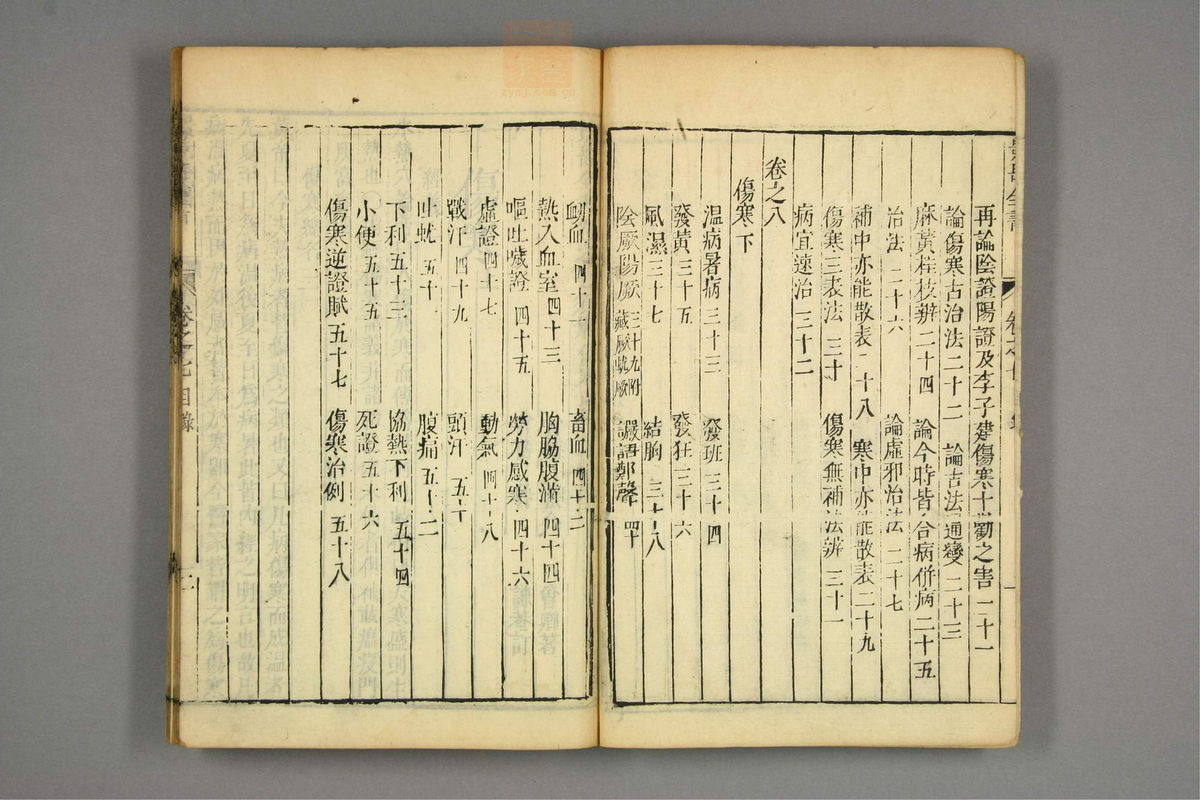 再論陰證陽證及李子建傷寒十勸之害 二十一
論傷寒古治法 二十二 論古法通變 二十三
麻黃桂枝辨 二十四 論今時皆合病併病 二十五
治法 二十六 論虛邪治法 二十七
補中亦能散表 二十八 寒中亦能散表 二十九
傷寒三表法 三十 傷寒無補法辨 三十一
病宜速治 三十二
卷之八
傷寒下
溫病暑病 三十三 發斑 三十四
發黃 三十五 發狂 三十六
風濕 三十七 結胸 三十八
陰厥陽厥 三十九附 藏厥蚘厥 譫語鄭聲 四十
衂血 四十一 畜血 四十二
熱入血室 四十三 胸脇腹滿 四十四
嘔吐噦證 四十五 勞力感寒 四十六
虛證 四十七 動氣 四十八
戰汗 四十九 頭汗 五十
吐蚘 五十一 腹痛 五十二
下利 五十三 協熱下利 五十四
小便 五十五 死證 五十六
傷寒逆證賦 五十七 傷寒治例 五十八
卷之七目錄